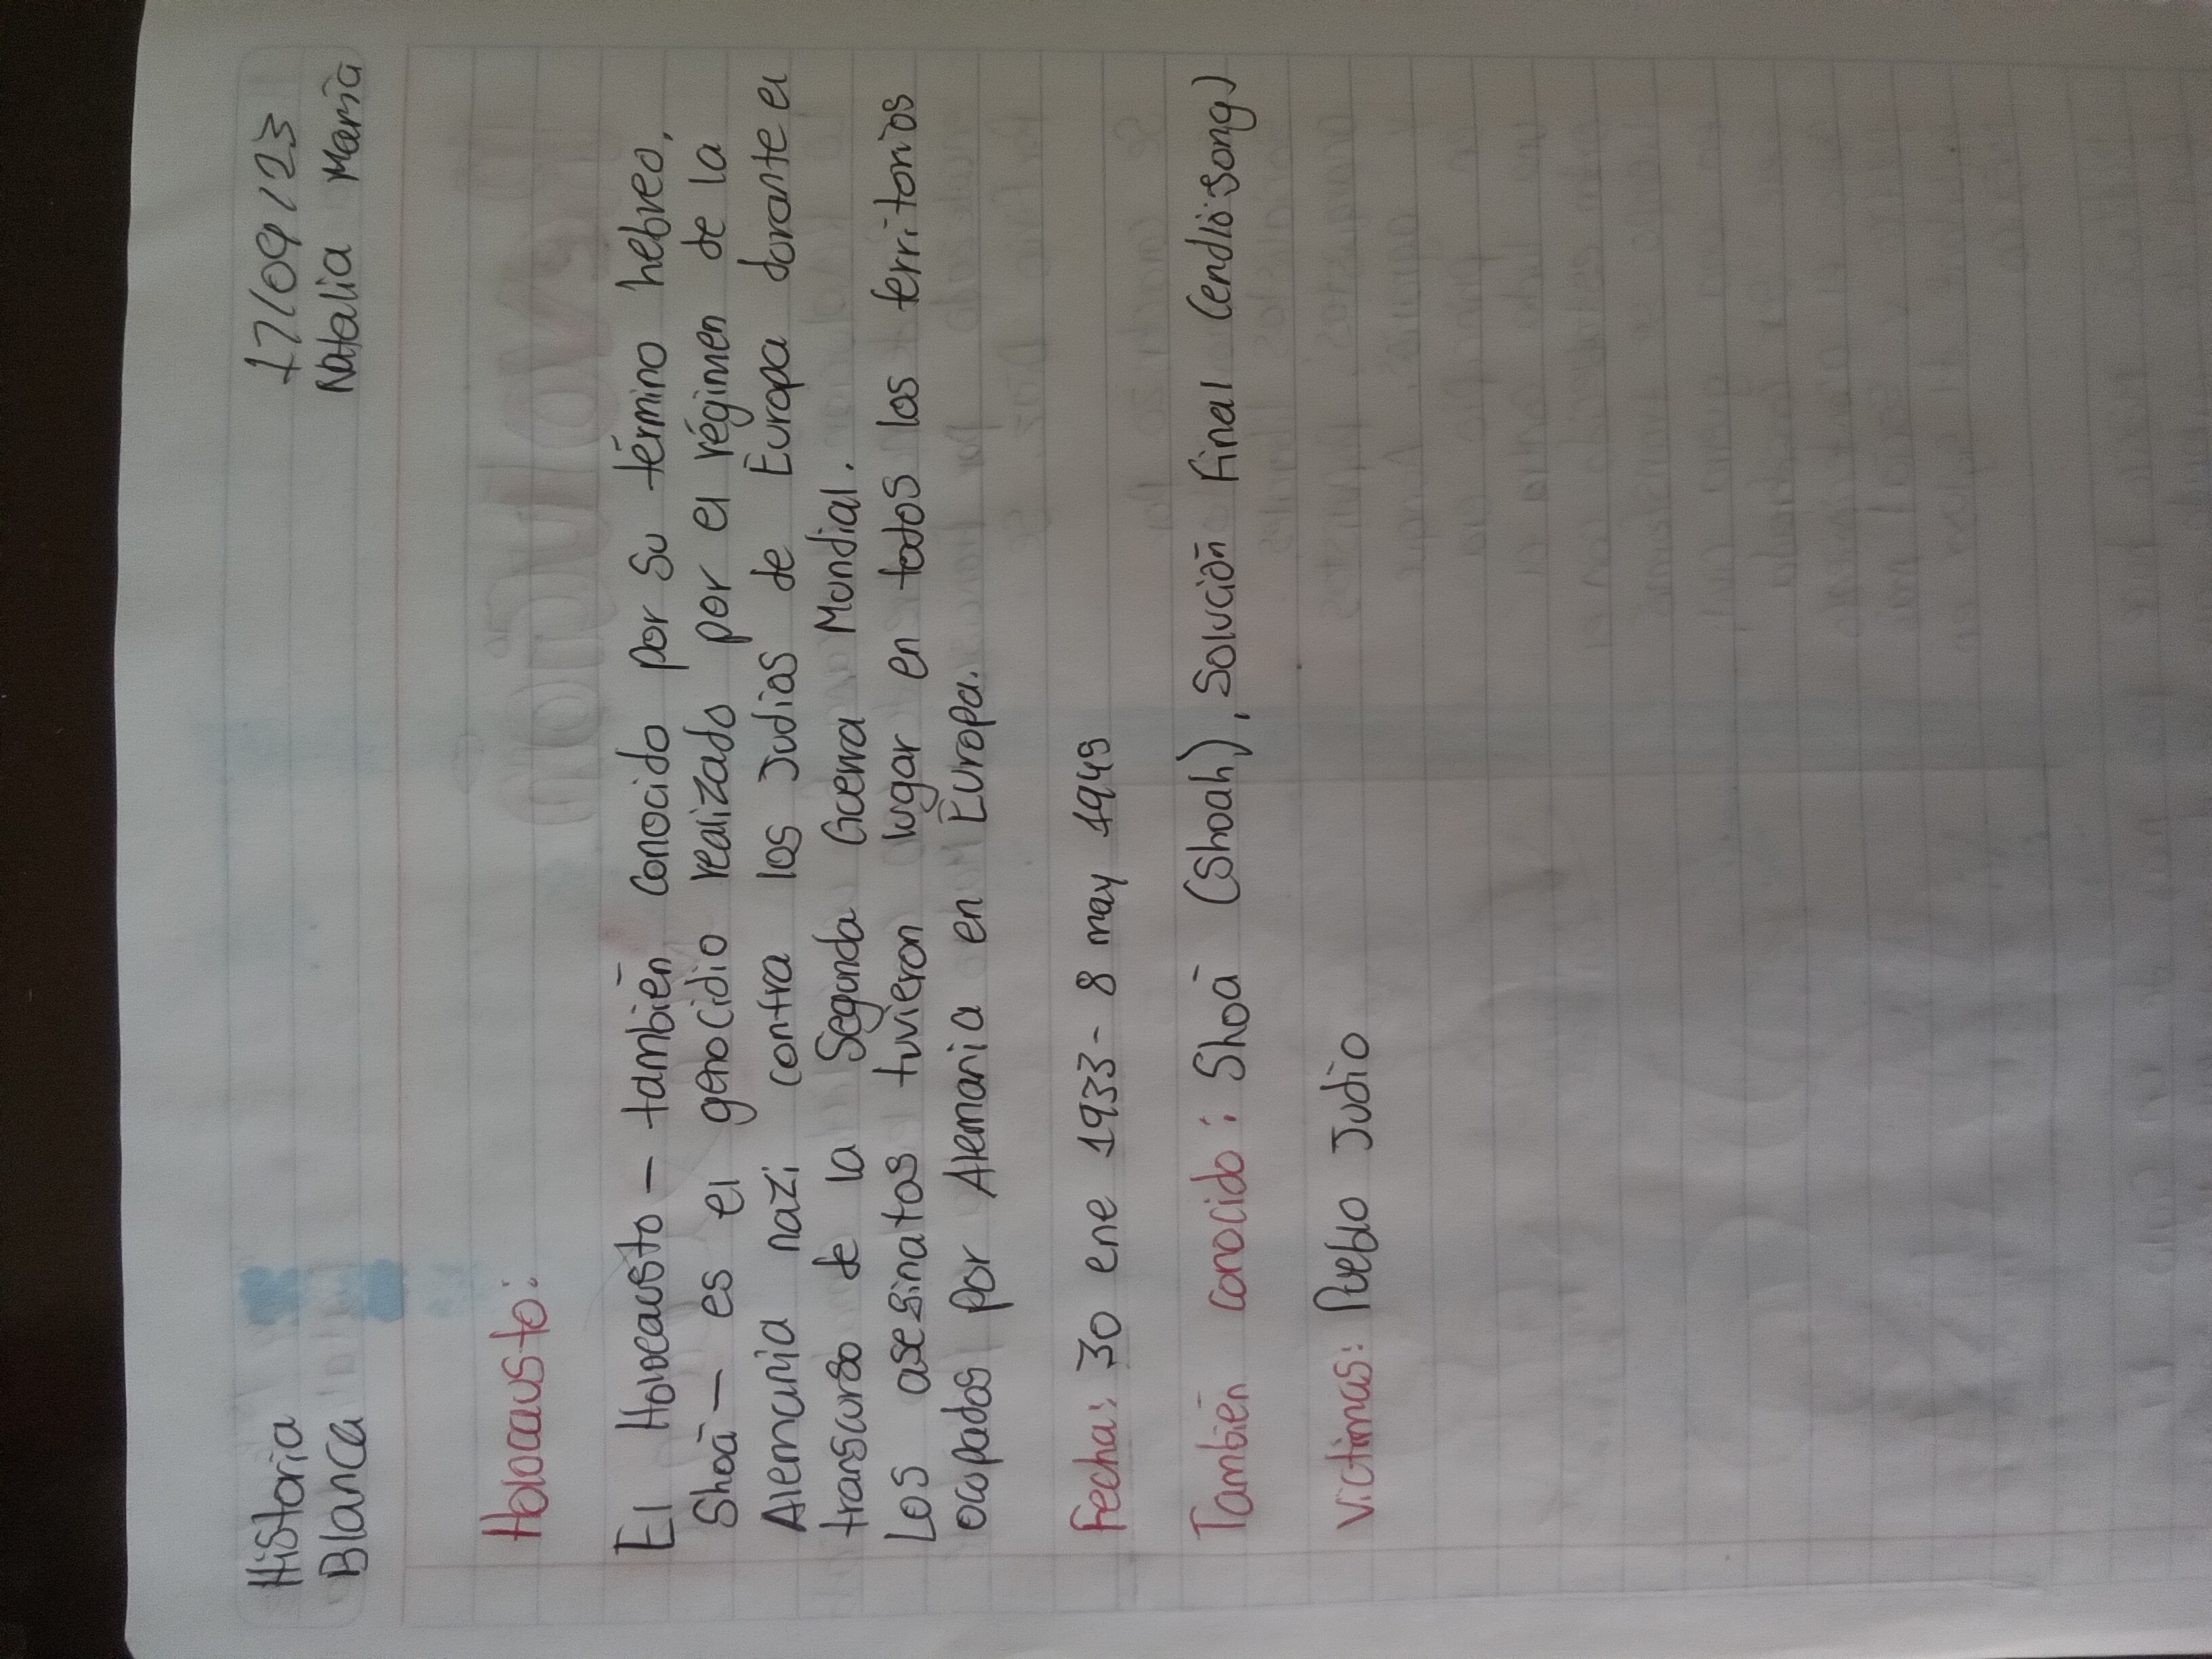 Historia
17/09/23
Blanca
Natalia María
Holocausto:
El Holocausto - también conocido por su término hebreo,
Shoá - es el genocidio realizado por el régimen de la
Alemania nazi contra los Judios de Europa durante el
transcurso de la Segunda Guerra Mundial.
Los asesinatos tuvieron lugar en todos los territorios
ocupados por Alemania en Europa.
Fecha: 30 ene 1933 - 8 may 1949
También conocido: Shoá (Shoah), Solución Final (endlösong)
Victimas: Pueblo Judío